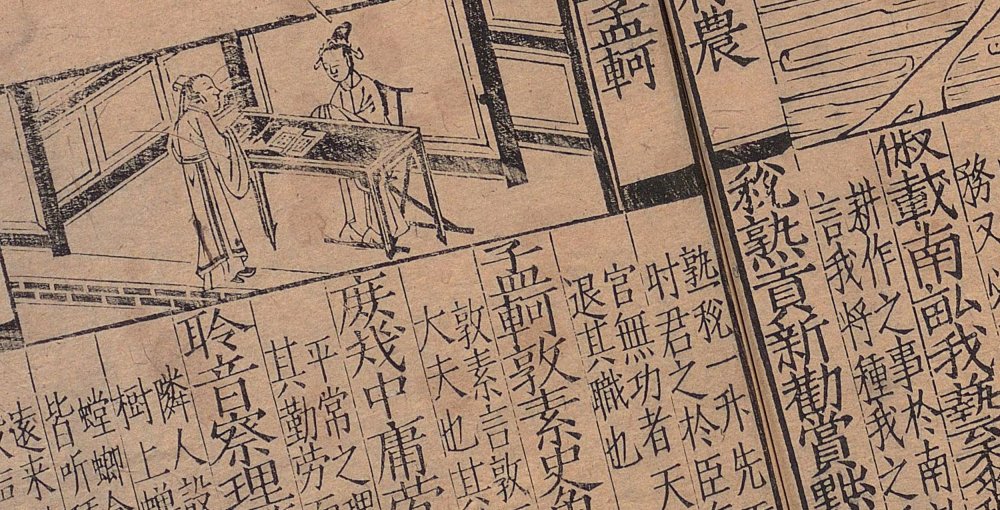 農
孟軻
務又
俶載南畝我藝黍
耕作之事扵南
言我将種我之
稅熟貢新勸賞黜
熟稅一升先
时君之扵臣
官無功者天
退其職也
孟軻敦素史魚
敦素言敦
大夫也其
庶㡬中庸勞
平常之理
其勤劳
聆音察理
隣人設
樹上蟬
螳螂
皆听
遠来